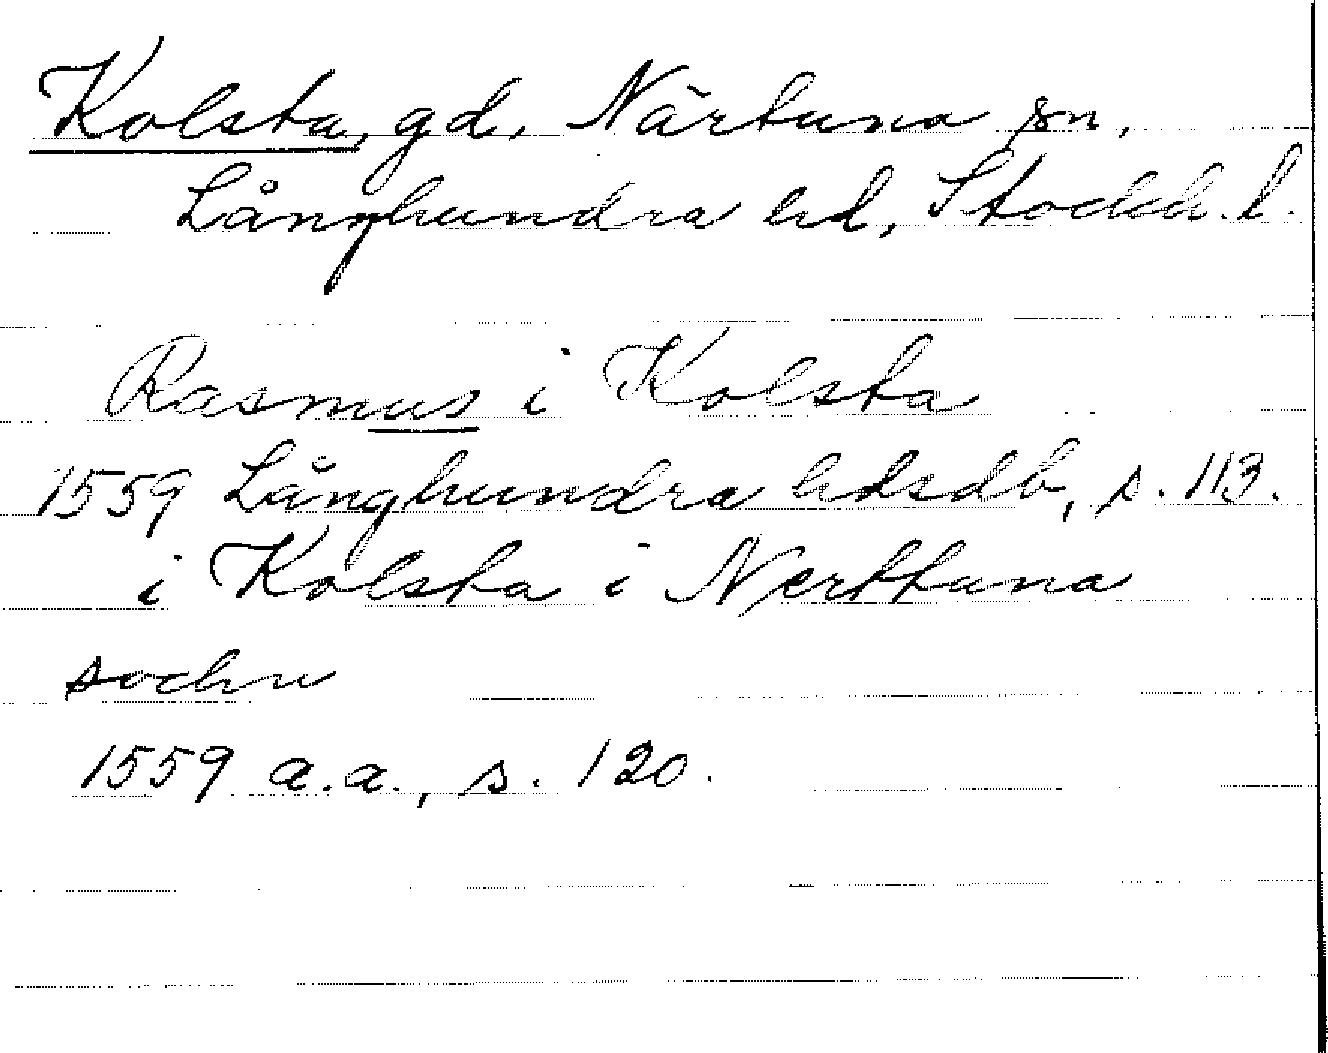 Kolsta, gd, Närtuna sn,
Långhundra hd, Stockh. l.
Rasmus i Kolsta
1559 Långhundra hdsdb, s. 113.
i Kolsta i Nerttuna
sochn
1559 a.a., s. 120.